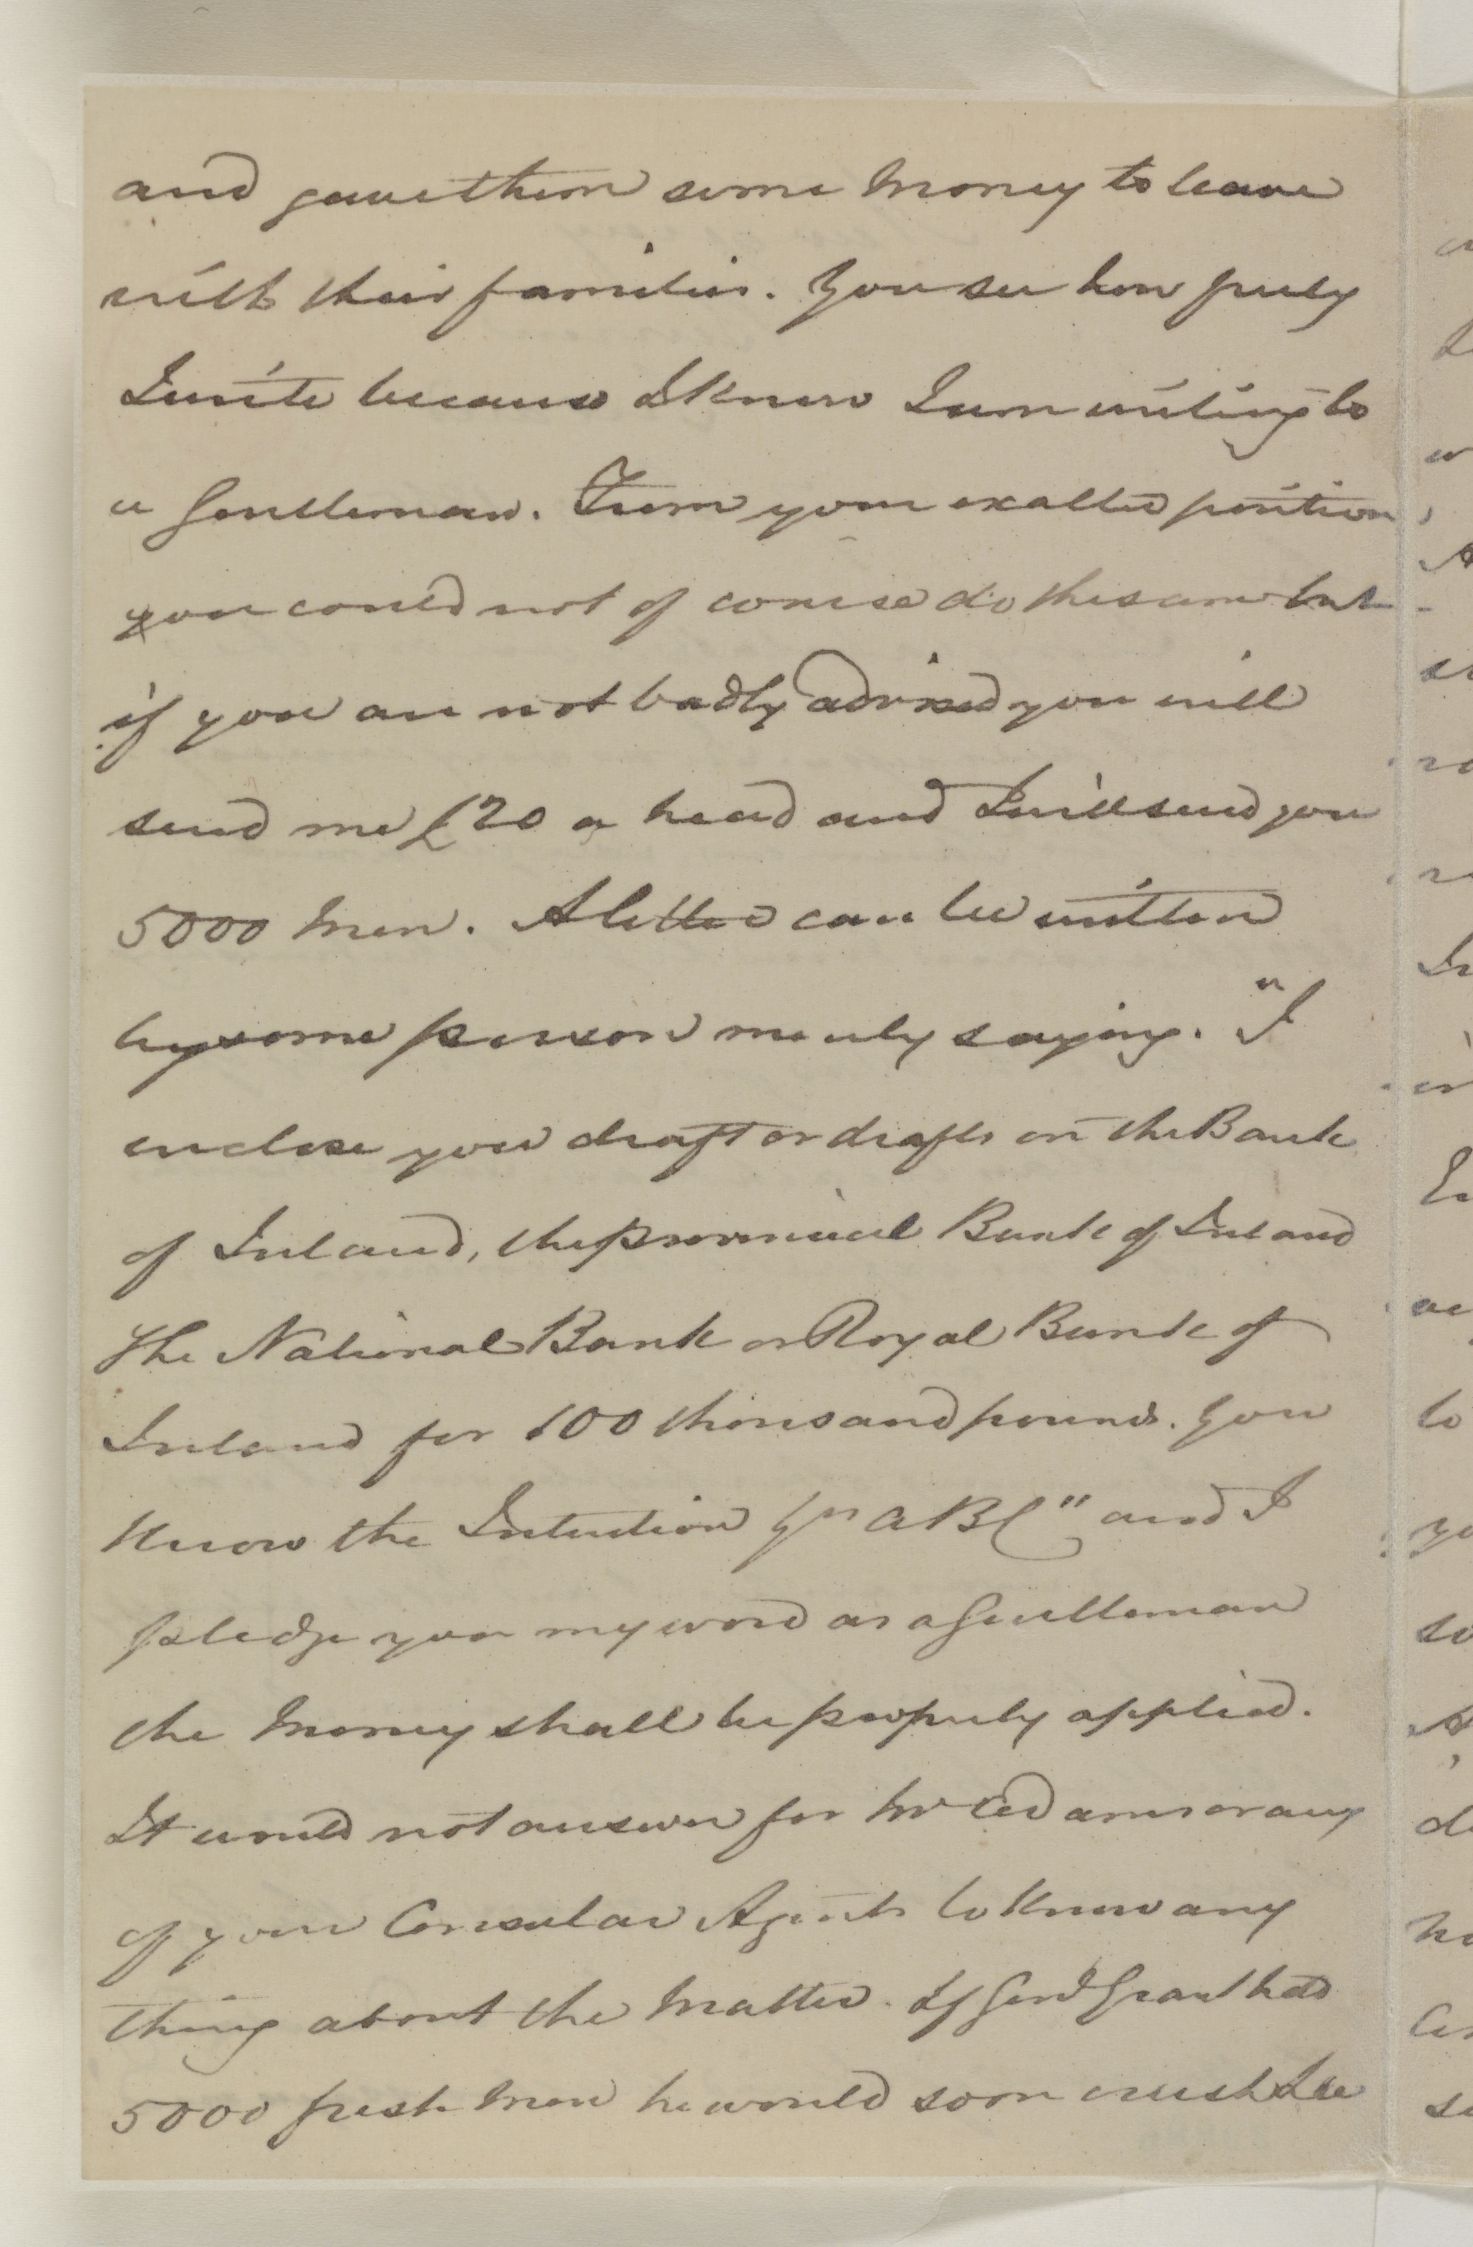 and gave them some money to leave
with their families. You see how freely
I write because I know I am writing to
a Gentleman. From your exalted position
you could not of course do the same but
if you are not badly advised you will
send me £20 a head and I will send you
5000 men. A letter can be written
by some person merely saying. "I
enclose you draft or drafts on the Bank
of Ireland, the Provincial Bank of Ireland
The National Bank or Royal Bank of
Ireland for 100 thousand pounds. You
know the Intention Yrs ABC" and I
pledge you my word as a Gentleman
the money shall be properly applied.
It would not answer for Mr Adams or any
of your Consular Agents to know any
thing about the matter. If Genl Grant had
5000 fresh men he would soon crush Lee